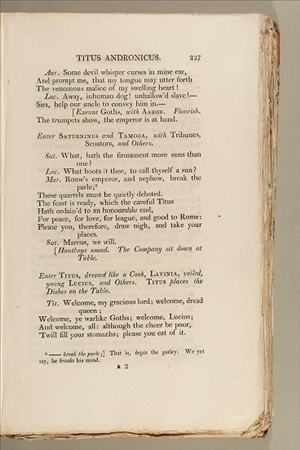 TITUS ANDRONICUS. 227
Aar. Some devil whisper curses in mine ear,
And prompt me, that my tongue may utter forth
The venomous malice of my swelling heart!
Luc. Away, inhuman dog! unhallow'd slave!—
Sirs, help our uncle to convey him in.—
[Exeunt Goths, with AARON. Flourish.
The trumpets show, the emperor is at hand.
Enter SATURNINUS and TAMORA, with Tribunes,
Senators, and Others.
Sat. What, hath the firmament more suns than
one?
Luc. What boots it thee, to call thyself a sun?
Mar. Rome's emperor, and nephew, break the
parle;*
These quarrels must be quietly debated.
The feast is ready, which the careful Titus
Hath ordain'd to an honourable end,
For peace, for love, for league, and good to Rome:
Please you, therefore, draw nigh, and take your
places.
Sat. Marcus, we will.
[Hautboys sound. The Company sit down at
Table.
Enter TITUS, dressed like a Cook, LAVINIA, veiled,
young LUCIUS, and Others. TITUS places the
Dishes on the Table.
Tit. Welcome, my gracious lord; welcome, dread
queen;
Welcome, ye warlike Goths; welcome, Lucius;
And welcome, all: although the cheer be poor,
'Twill fill your stomachs; please you eat of it.
* —— break the parle;] That is, begin the parley. We yet
say, he breaks his mind.
R 2